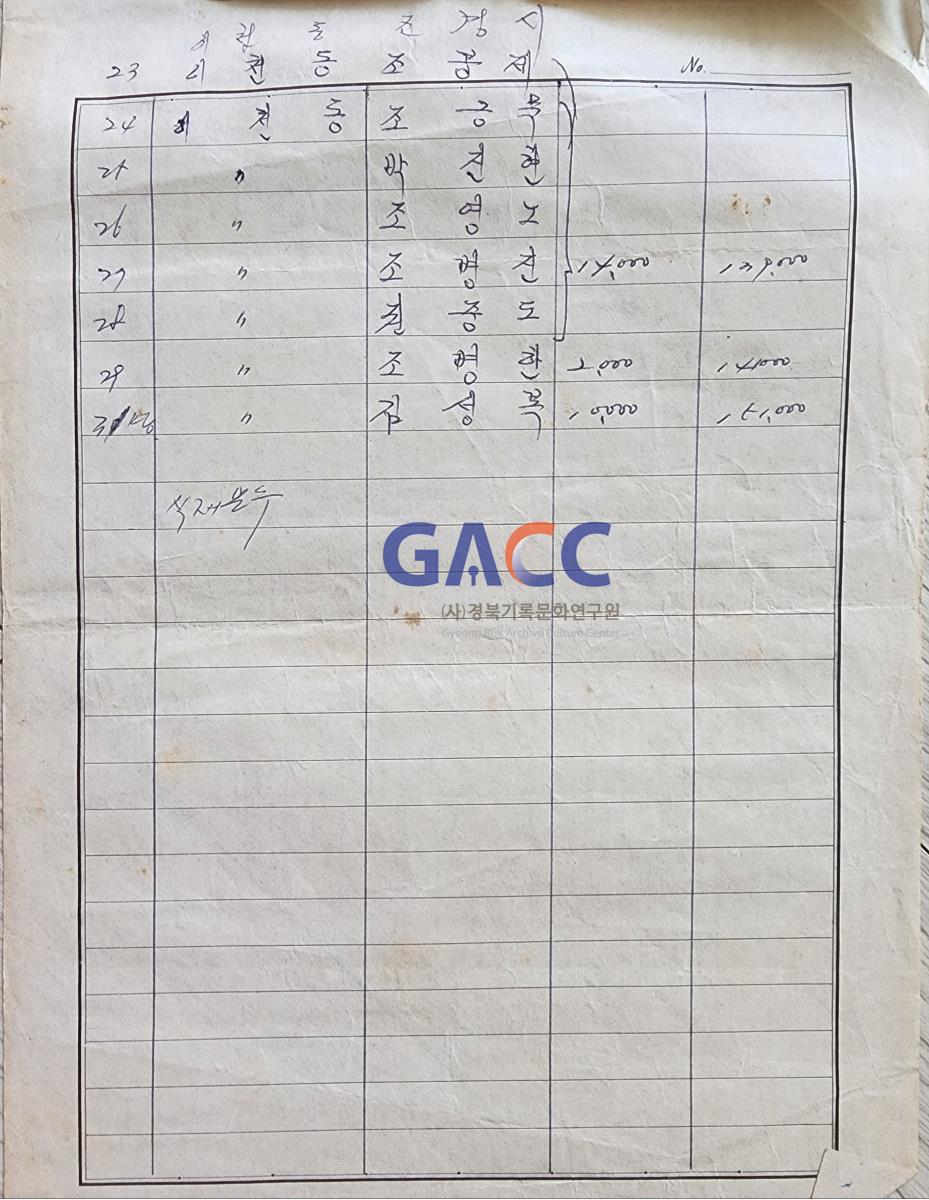 이 천 동 조 정 시
23 이 천 동 조 봉 제
No.
24 이 천 동 조 긍 묵
25 〃 박 진 환
26 〃 조 영 노
27 〃 조 명 진 14,000 139,000
28 〃 권 중 도
29 〃 조 명 한 2,000 141,000
〃 김 성 복 10,000 151,000
GACC
(사)경북기록문화연구원
Gyeong Buk Archive Culture Center